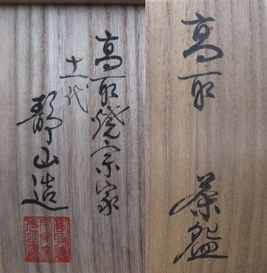 高取 茶盌
高取燒宗家
十一代
静山造